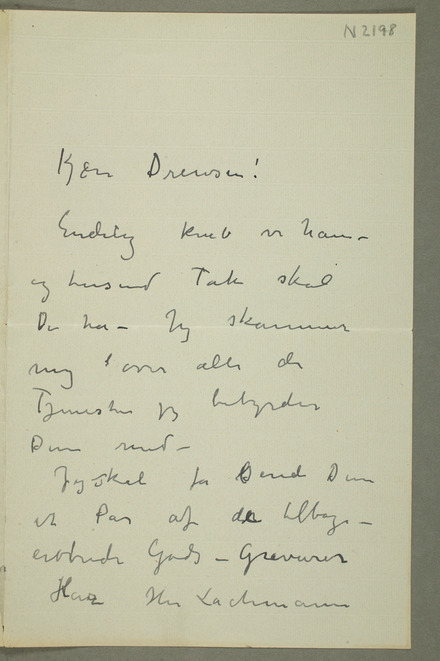 N2198
Kjære Drewsen!
Endelig kneb vi ham –
og tusind Tak skal
De ha – Jeg skammer
mig over alle de
Tjenester jeg bebyrder
Dem med –
Jeg skal få sende Dem
et Par af de tilbage –
erobrede Gods – Gravurer
Har Hr Lachmann